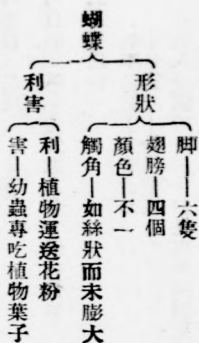 蝴蝶
形狀
脚——六隻
翅膀—四個
顏色—不一
觸角—如絲狀而未膨大
利害
利—植物運送花粉
害—幼蟲專吃植物葉子